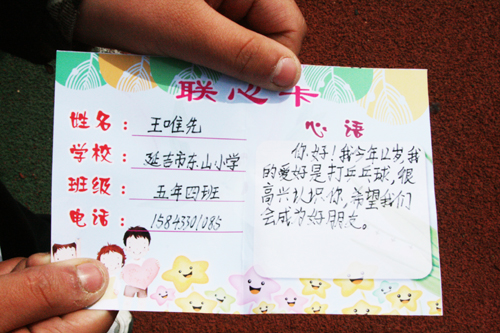 联心卡
姓名：王唯先
学校：延吉市东山小学
班级：五年四班
电话：15843301085
心语
你好！我今年12岁，我
的爱好是打乒乓球，很
高兴认识你，希望我们
会成为好朋友。